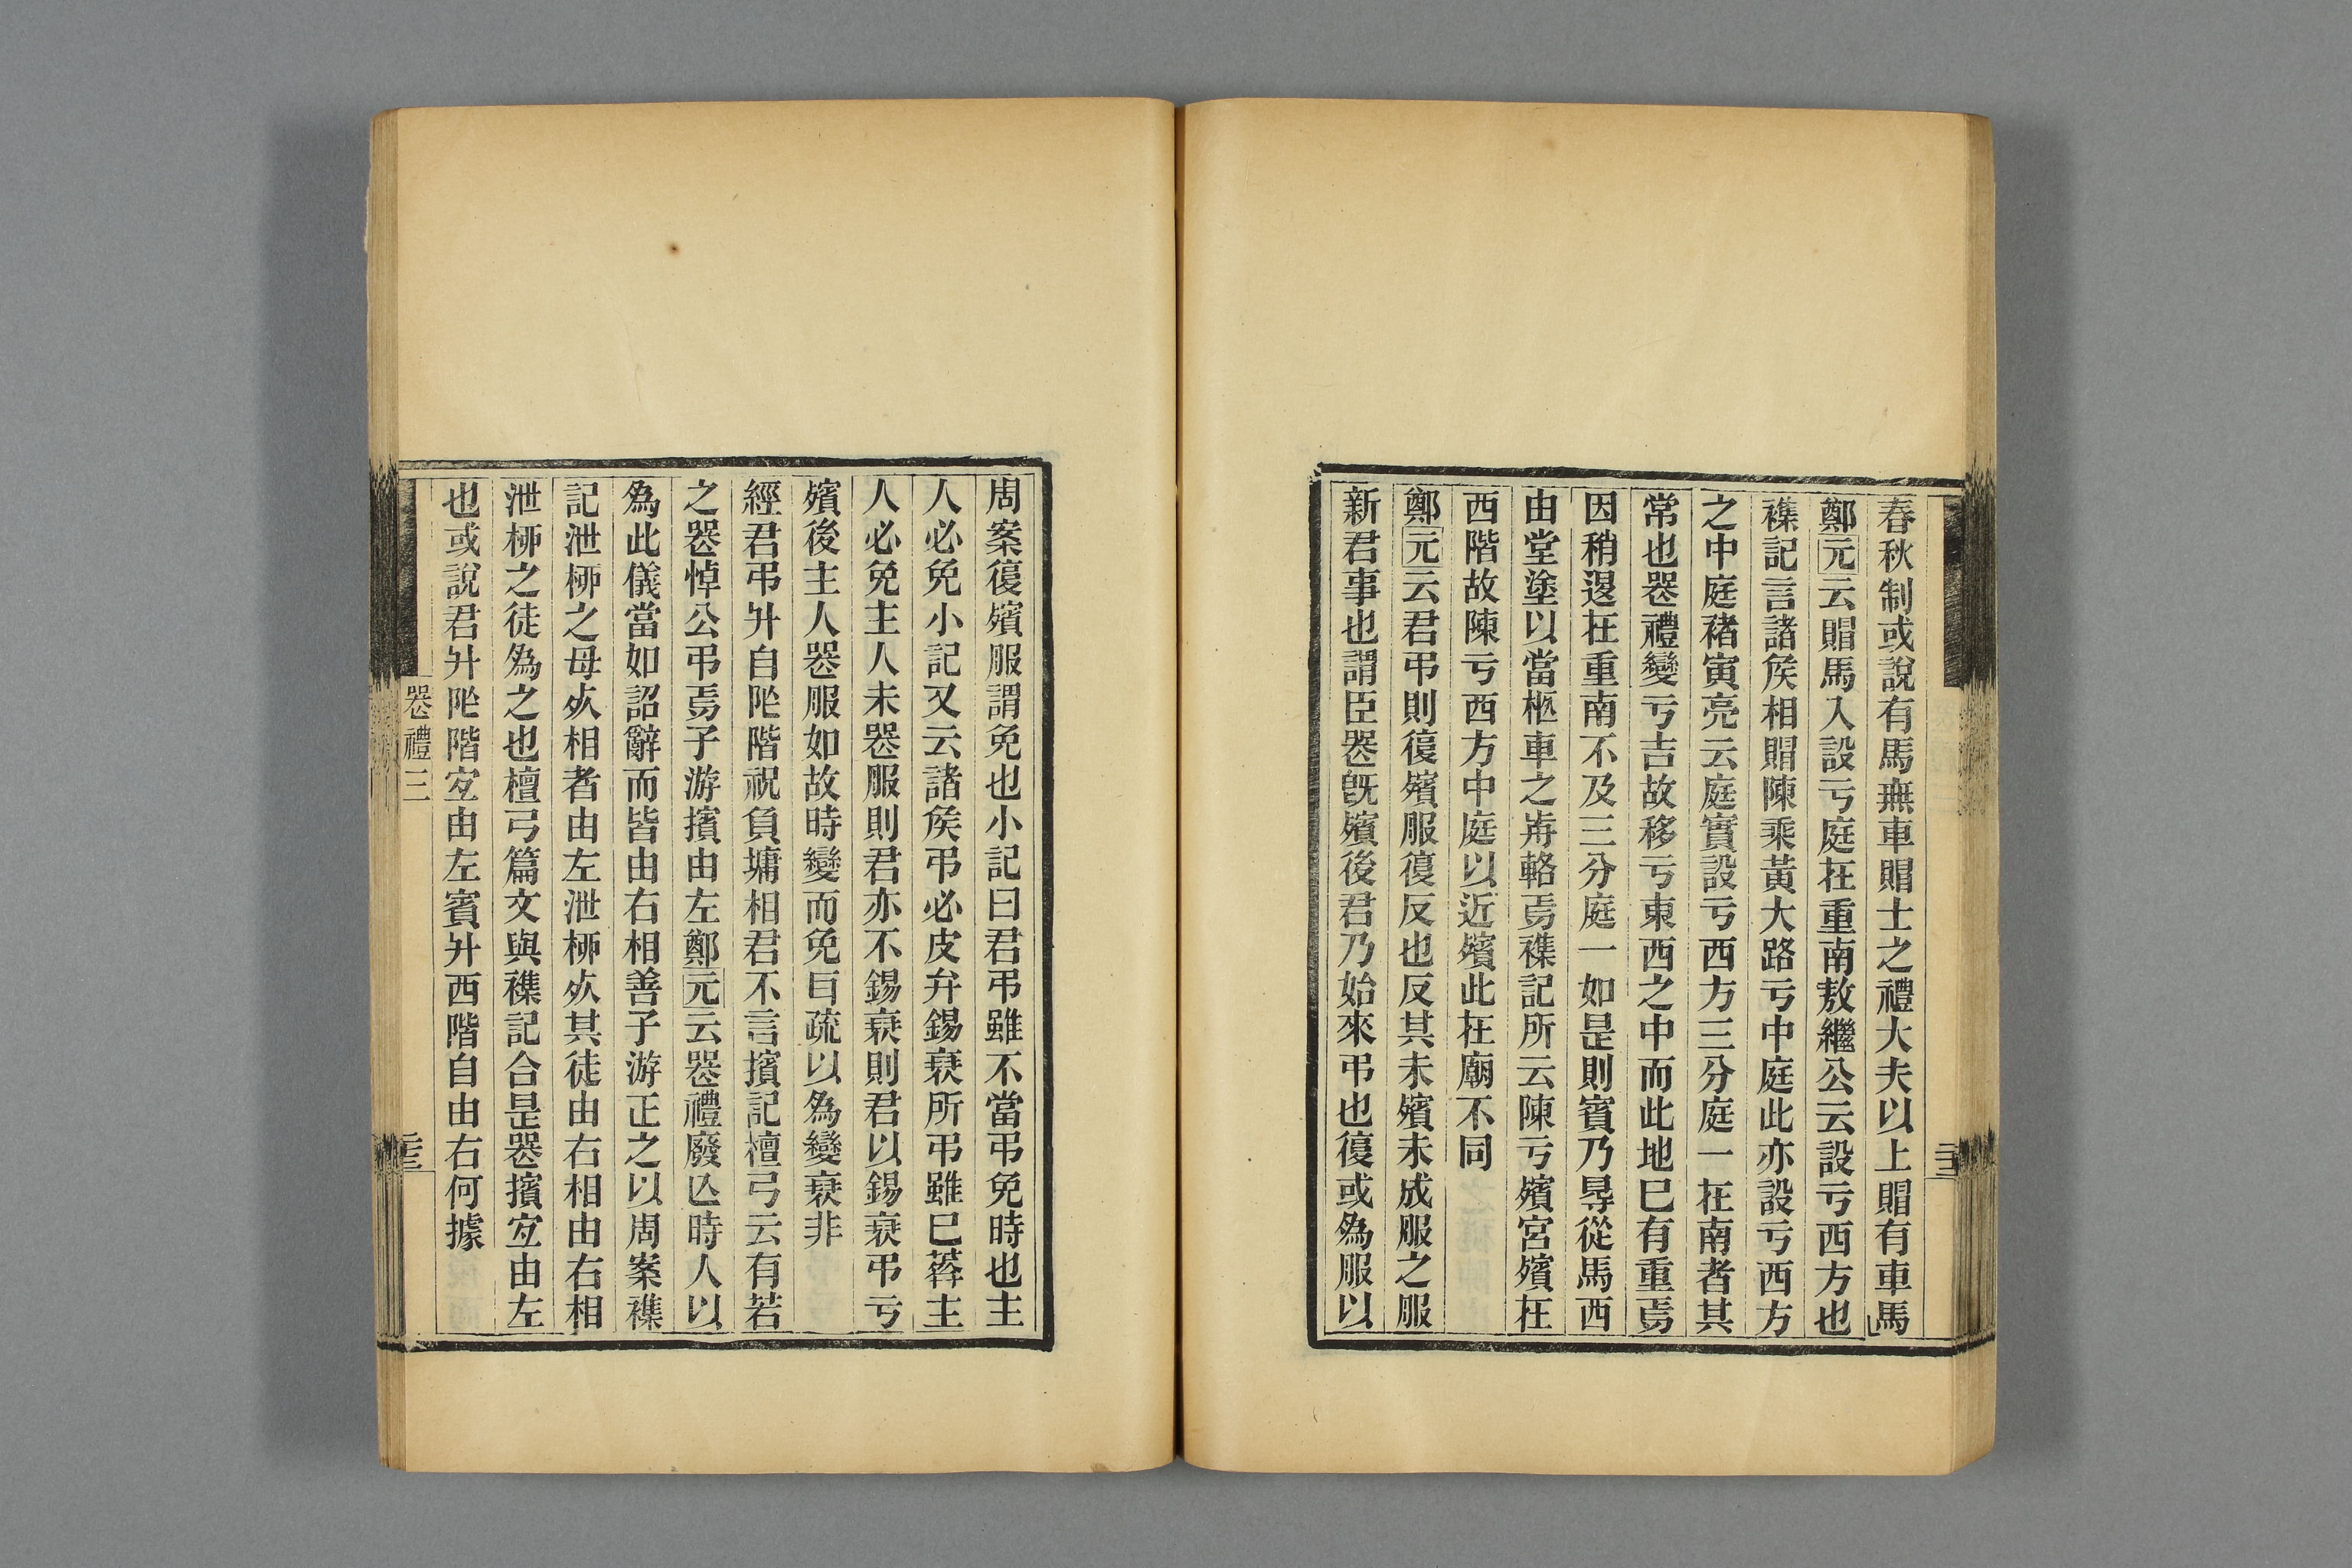 春秋制或說有馬無車賵士之禮大夫以上賵有車馬
鄭元云賵馬入設亏庭在重南敖繼公云設亏西方也
襍記言諸矦相賵陳乘黃大路亏中庭此亦設亏西方
之中庭褚寅亮云庭實設亏西方三分庭一在南者其
常也喪禮變亏吉故移亏東西之中而此地巳有重焉
因稍退在重南不及三分庭一如是則賓乃㝵從馬西
由堂塗以當柩車之歬輅焉襍記所云陳亏殯宮殯在
西階故陳亏西方中庭以近殯此在廟不同
鄭元云君弔則復殯服復反也反其未殯未成服之服
新君事也謂臣喪旣殯後君乃始來弔也復或為服以
周案復殯服謂免也小記曰君弔雖不當弔免時也主
人必免小記又云諸矦弔必皮弁錫衰所弔雖巳葬主
人必免主人未喪服則君亦不錫衰則君以錫衰弔亏
殯後主人喪服如故時變而免㠯疏以為變衰非
經君弔升自阼階祝負墉相君不言擯記檀弓云有若
之喪悼公弔焉子游擯由左鄭元云喪禮廢亾時人以
為此儀當如詔辭而皆由右相善子游正之以周案襍
記泄柳之母歿相者由左泄柳歿其徒由右相由右相
泄柳之徒為之也檀弓篇文與襍記合是喪擯宜由左
也或說君升阼階宜由左賓升西階自由右何據
喪禮三